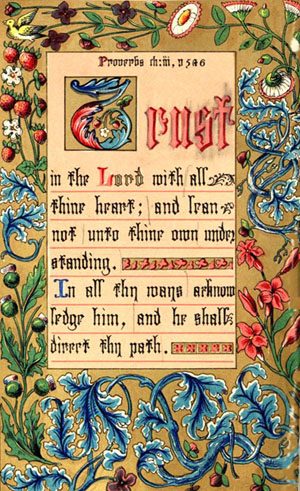 Proverbs ch: iii, v 5 & 6
Trust
in the Lord with all
thine heart; and lean
not unto thine own under
standing.
In all thy ways acknow
ledge him, and he shall
direct thy path.